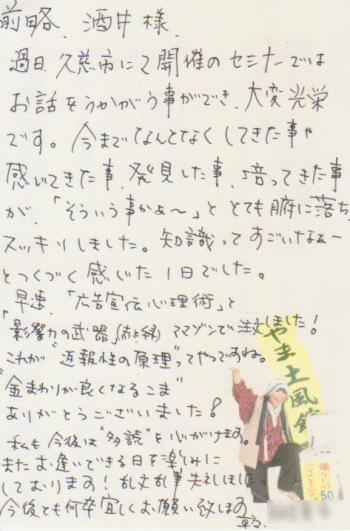 前略、酒井様、
過日、久慈市にて開催のセミナーでは
お話をうかがう事ができ、大変光栄
です。今までなんとなくしてきた事や
感じてきた事、発見した事、培ってきた事
が、「そういう事かぁ〜」ととても腑に落ち、
スッキリしました。知識ってすごいなぁ〜
とつくづく感じた1日でした。
早速、「広告宣伝心理術」と
「影響力の武器」 アマゾンで注文しました!
これが"返報性の原理"ってやつですね。
"金まわりが良くなるこま"
ありがとうございました!
私も今後は"多読"を心がけます。
またお逢いできる日を楽しみに
しております!乱文乱筆失礼しました。
今後とも何卒宜しくお願い致します
やま土風館
50